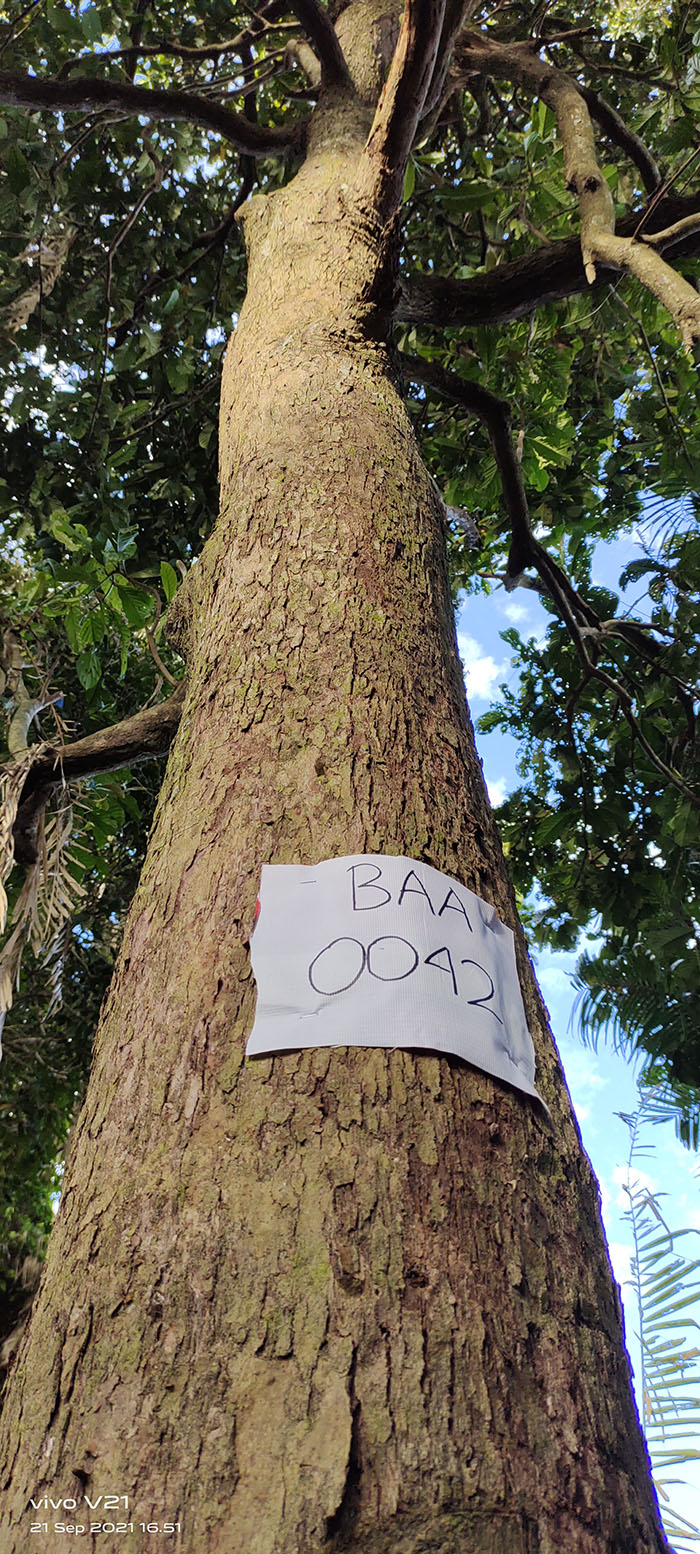 BAA
0042
vivo V21
21 Sep 2021 16.51